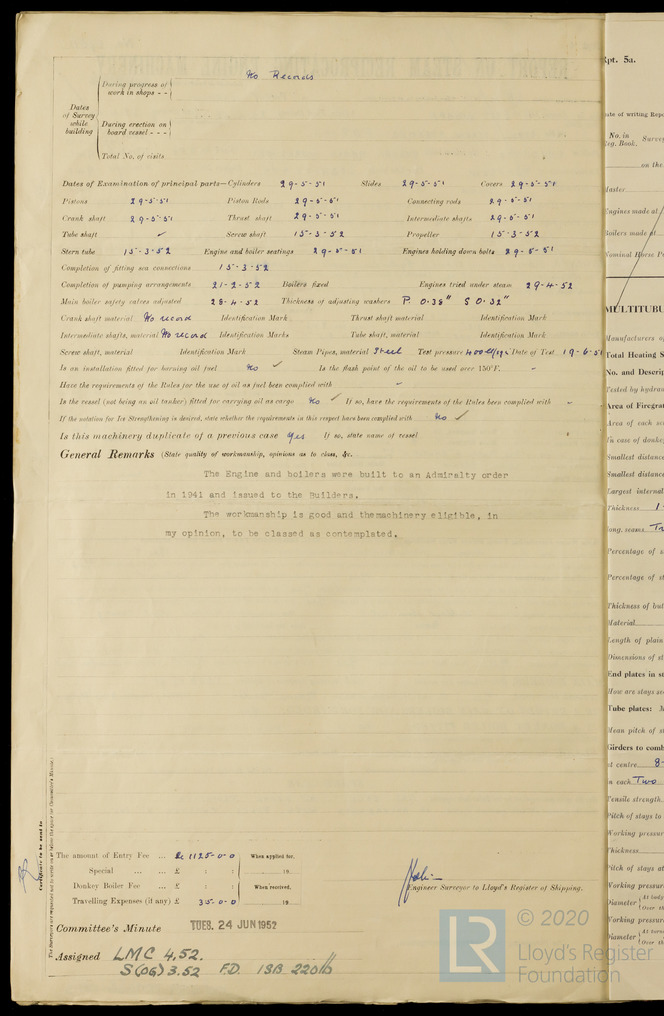 No Records
During progress of work in shops - -
Dates of Survey while building
During erection on board vessel - - -
Total No. of visits
Dates of Examination of principal parts—Cylinders 29-5-51 Slides 29-5-51 Covers 29-5-51
Pistons 29-5-51 Piston Rods 29-5-51 Connecting rods 29-5-51
Crank shaft 29-5-51 Thrust shaft 29-5-51 Intermediate shafts 29-5-51
Tube shaft ✓ Screw shaft 15-3-52 Propeller 15-3-52
Stern tube 15-3-52 Engine and boiler seatings 29-5-51 Engines holding down bolts 29-5-51
Completion of fitting sea connections 15-3-52
Completion of pumping arrangements 21-2-52 Boilers fixed Engines tried under steam 29-4-52
Main boiler safety valves adjusted 28-4-52 Thickness of adjusting washers P. 0.38" S 0.32"
Crank shaft material No record Identification Mark Thrust shaft material Identification Mark
Intermediate shafts, material No record Identification Marks Tube shaft, material Identification Mark
Screw shaft, material Identification Mark Steam Pipes, material Steel Test pressure Date of Test 19-6-51
Is an installation fitted for burning oil fuel No ✓ Is the flash point of the oil to be used over 150°F. -
Have the requirements of the Rules for the use of oil as fuel been complied with -
Is the vessel (not being an oil tanker) fitted for carrying oil as cargo No ✓ If so, have the requirements of the Rules been complied with -
If the notation for Ice Strengthening is desired, state whether the requirements in this respect have been complied with No ✓
Is this machinery duplicate of a previous case Yes If so, state name of vessel
General Remarks (State quality of workmanship, opinions as to class, &c.
The Engine and boilers were built to an Admiralty order
in 1941 and issued to the Builders.
The workmanship is good and themachinery eligible, in
my opinion, to be classed as contemplated.
The amount of Entry Fee ... 1125-0-0 When applied for,
Special ... ... £ : : 19
Donkey Boiler Fee ... £ : : When received,
Travelling Expenses (if any) £ 35-0-0 19
Engineer Surveyor to Lloyd's Register of Shipping.
Committee's Minute TUES. 24 JUN 1952
Assigned LMC 4,52.
S(OG) 3.52 F.D. 1SB 220lb
Certificate to be sent to
© 2020
LR
Lloyd's Register
Foundation
Rpt. 5a.
No. in
Reg. Book.
on the
Master
Engines made at
Boilers made at
Nominal Horse P
MULTITUBU
Manufacturers of
Total Heating S
No. and Descrip
Tested by hydrau
Area of Firegrat
Area of each s
In case of donke
Smallest distance
Smallest distance
Largest internal
Thickness
long. seams
Percentage of s
Percentage of st
Thickness of but
Material
Length of plain
Dimensions of st
End plates in st
How are stays se
Tube plates: M
Mean pitch of s
Girders to comb
at centre 8-
in each Two
Tensile strength
Pitch of stays to
Working pressur
Thickness
Pitch of stays at
Working pressur
Diameter
Working pressur
Diameter